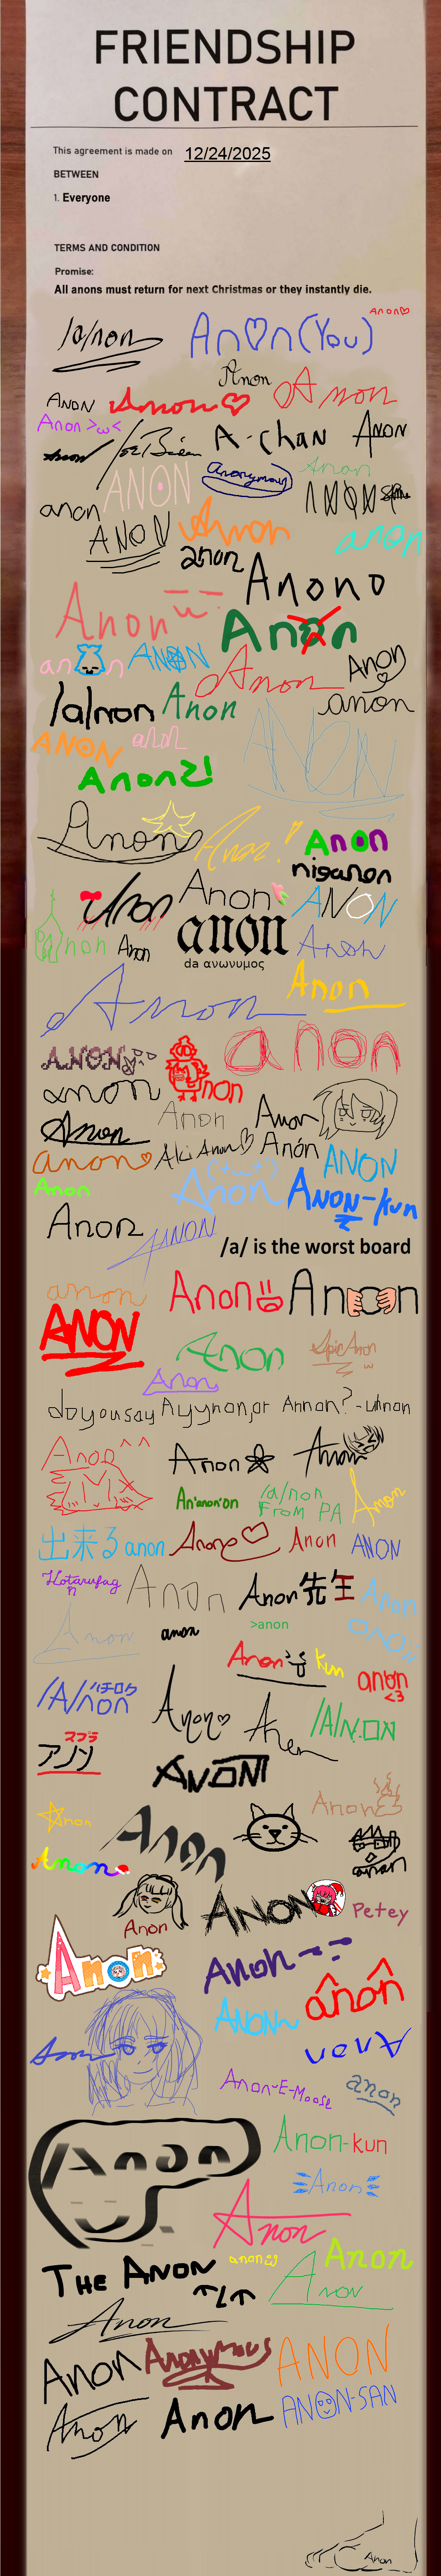 FRIENDSHIP
CONTRACT
This agreement is made on 12/24/2025
BETWEEN
1. Everyone
TERMS AND CONDITION
Promise:
All anons must return for next Christmas or they instantly die.
Anon♡
/a/non
An♡n (You)
Anon
Anon
Anon♡
Anon
Anon >ω<
Joe Biden
A-chan
Anon
Anon
Anonymous
Anon
ANON
anon
ANON
Anon
anon
anon
Anono
Anon
Anon
an n
ANON
Anon
Anon
/a/non
Anon
anon
ANON
anon
ANON
Anon2!
Anon
Anon!
Anon
niganon
Anon
Anon
ANON
non
Anon
anon
da ανωνυμος
Anon
Anon
Anon
ANON
non
anon
anon
Anon
Anon
Anon
anon♡
Aki Anon♡
Anón
ANON
Anon
Anon
ANON-kun
Anon
ANON
/a/ is the worst board
anon
Anon
Anon
ANON
Anon
EpicAnon
Anon
do you say Ayynon, or Annon? - Unnan
Anon ^^
Anon
Anon
An'anon'on
/a/non
From PA
Anon
出来る anon
Anon♡
Anon
ANON
Hotarufag
n
Anon
Anon先生
Anon
Anon
anon
>anon
anon
Anon
kun
anon
<3
/A/non
ハチロク
Anon♡
Anon
/A/NON
スプラ
アノン
ANON
Anon
Anon
Anon
Anon
anon
Anon
ANON
Petey
Anon
Anon
ânôn
ANON~
Anon
Anon
Anon-E-Moose
anon
Anon
Anon-kun
Anon
Anon
THE ANON
anon
Anon
Anon
Anon
Anon
Anonymous
ANON
Anon
Anon
ANON-SAN
Anon